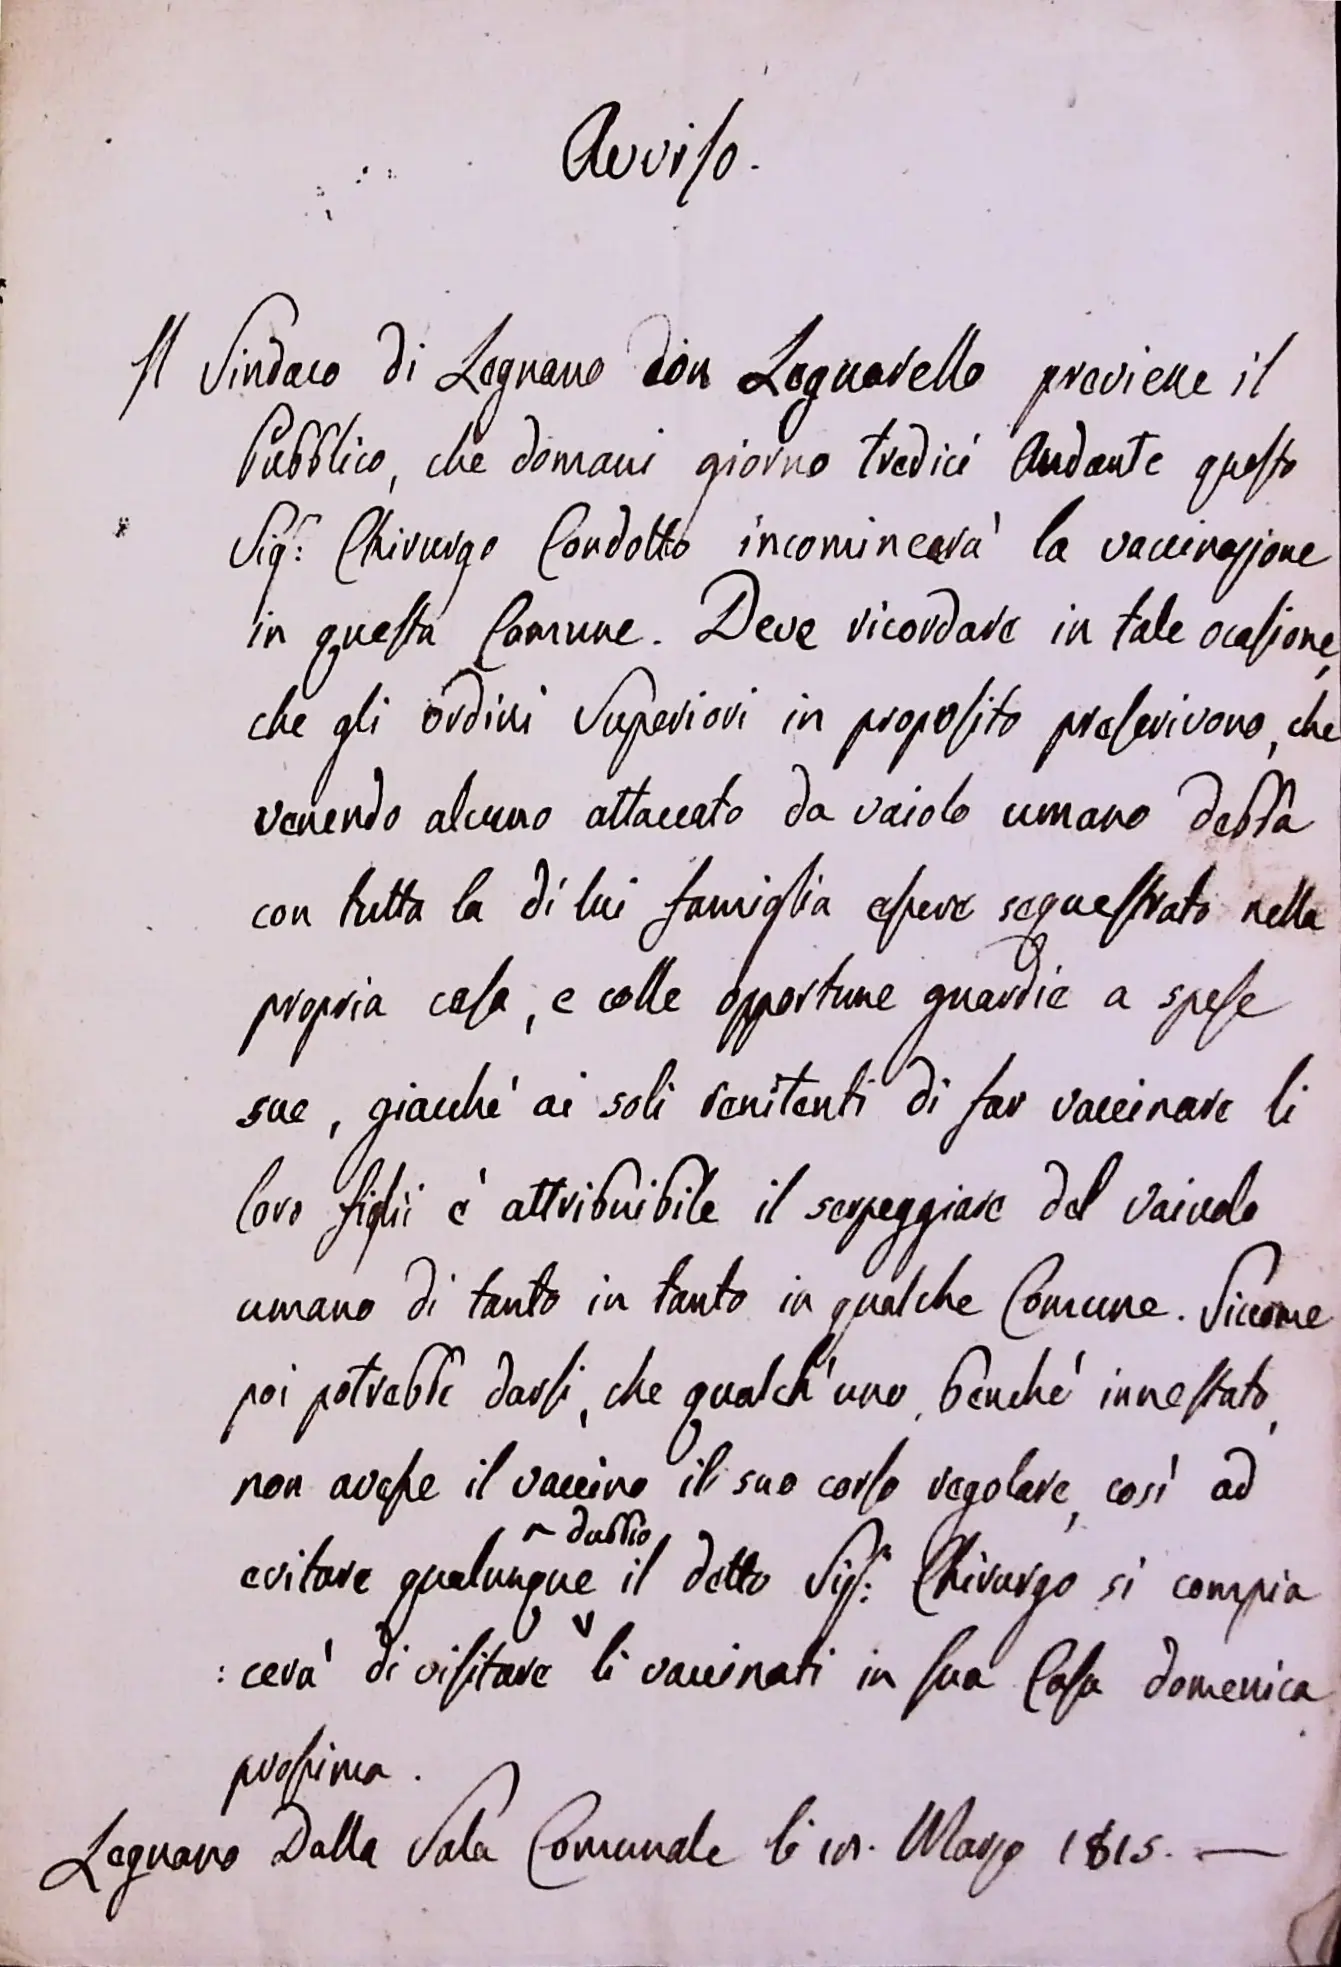 Avviso.
Il Sindaco di Legnano con Legnarello previene il
Pubblico, che domani giorno tredici Andante questo
Sig.r Chirurgo Condotto incomincerà la vaccinazione
in questa Comune. Deve ricordare in tale ocasione,
che gli ordini Superiori in proposito prescrivono, che
venendo alcuno attaccato da vaiolo umano debba
con tutta la di lui famiglia essere sequestrato nella
propria casa, e colle opportune guardie a spese
sue, giacché ai soli renitenti di far vaccinare li
loro figlii è attribuibile il serpeggiare del vaivolo
umano di tanto in tanto in qualche Comune. Siccome
poi potrebbe darsi, che qualch'uno, benché innestato,
non avesse il vaccino il suo corso regolare, così ad
evitare qualunque dubbio il detto Sig.r Chirurgo si compia
:cerà di visitare li vaccinati in sua Casa domenica
prossima.
Legnano Dalla Sala Comunale li Marzo 1815.